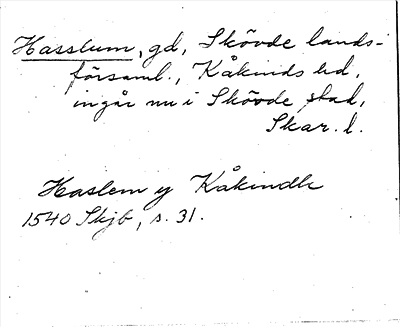 Hasslum, gd, Skövde lands-
församl., Kåkinds hd,
ingår nu i Skövde stad,
Skar. l.
Haslem y Kåkindh
1540 Skjb, s. 31.